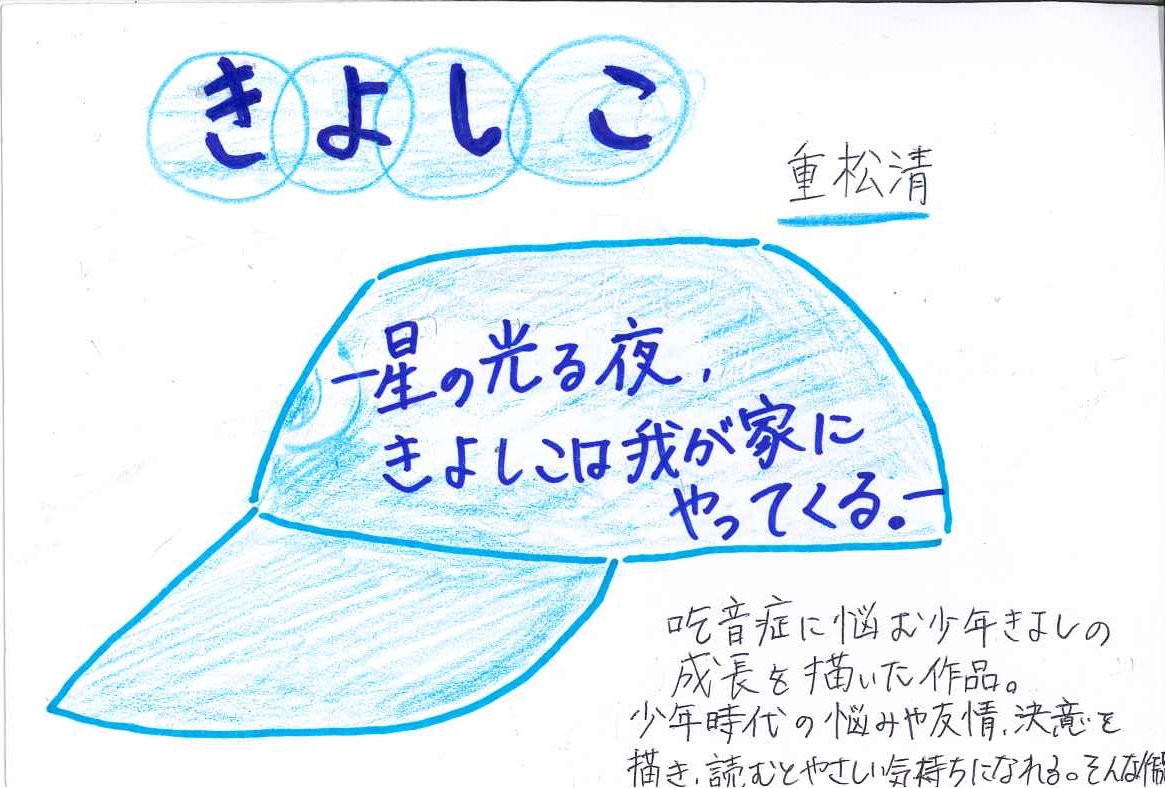 きよしこ
重松清
―星の光る夜、
きよしこは我が家に
やってくる。―
吃音症に悩む少年きよしの
成長を描いた作品。
少年時代の悩みや友情、決意を
描き、読むとやさしい気持ちになれる。そんな作品